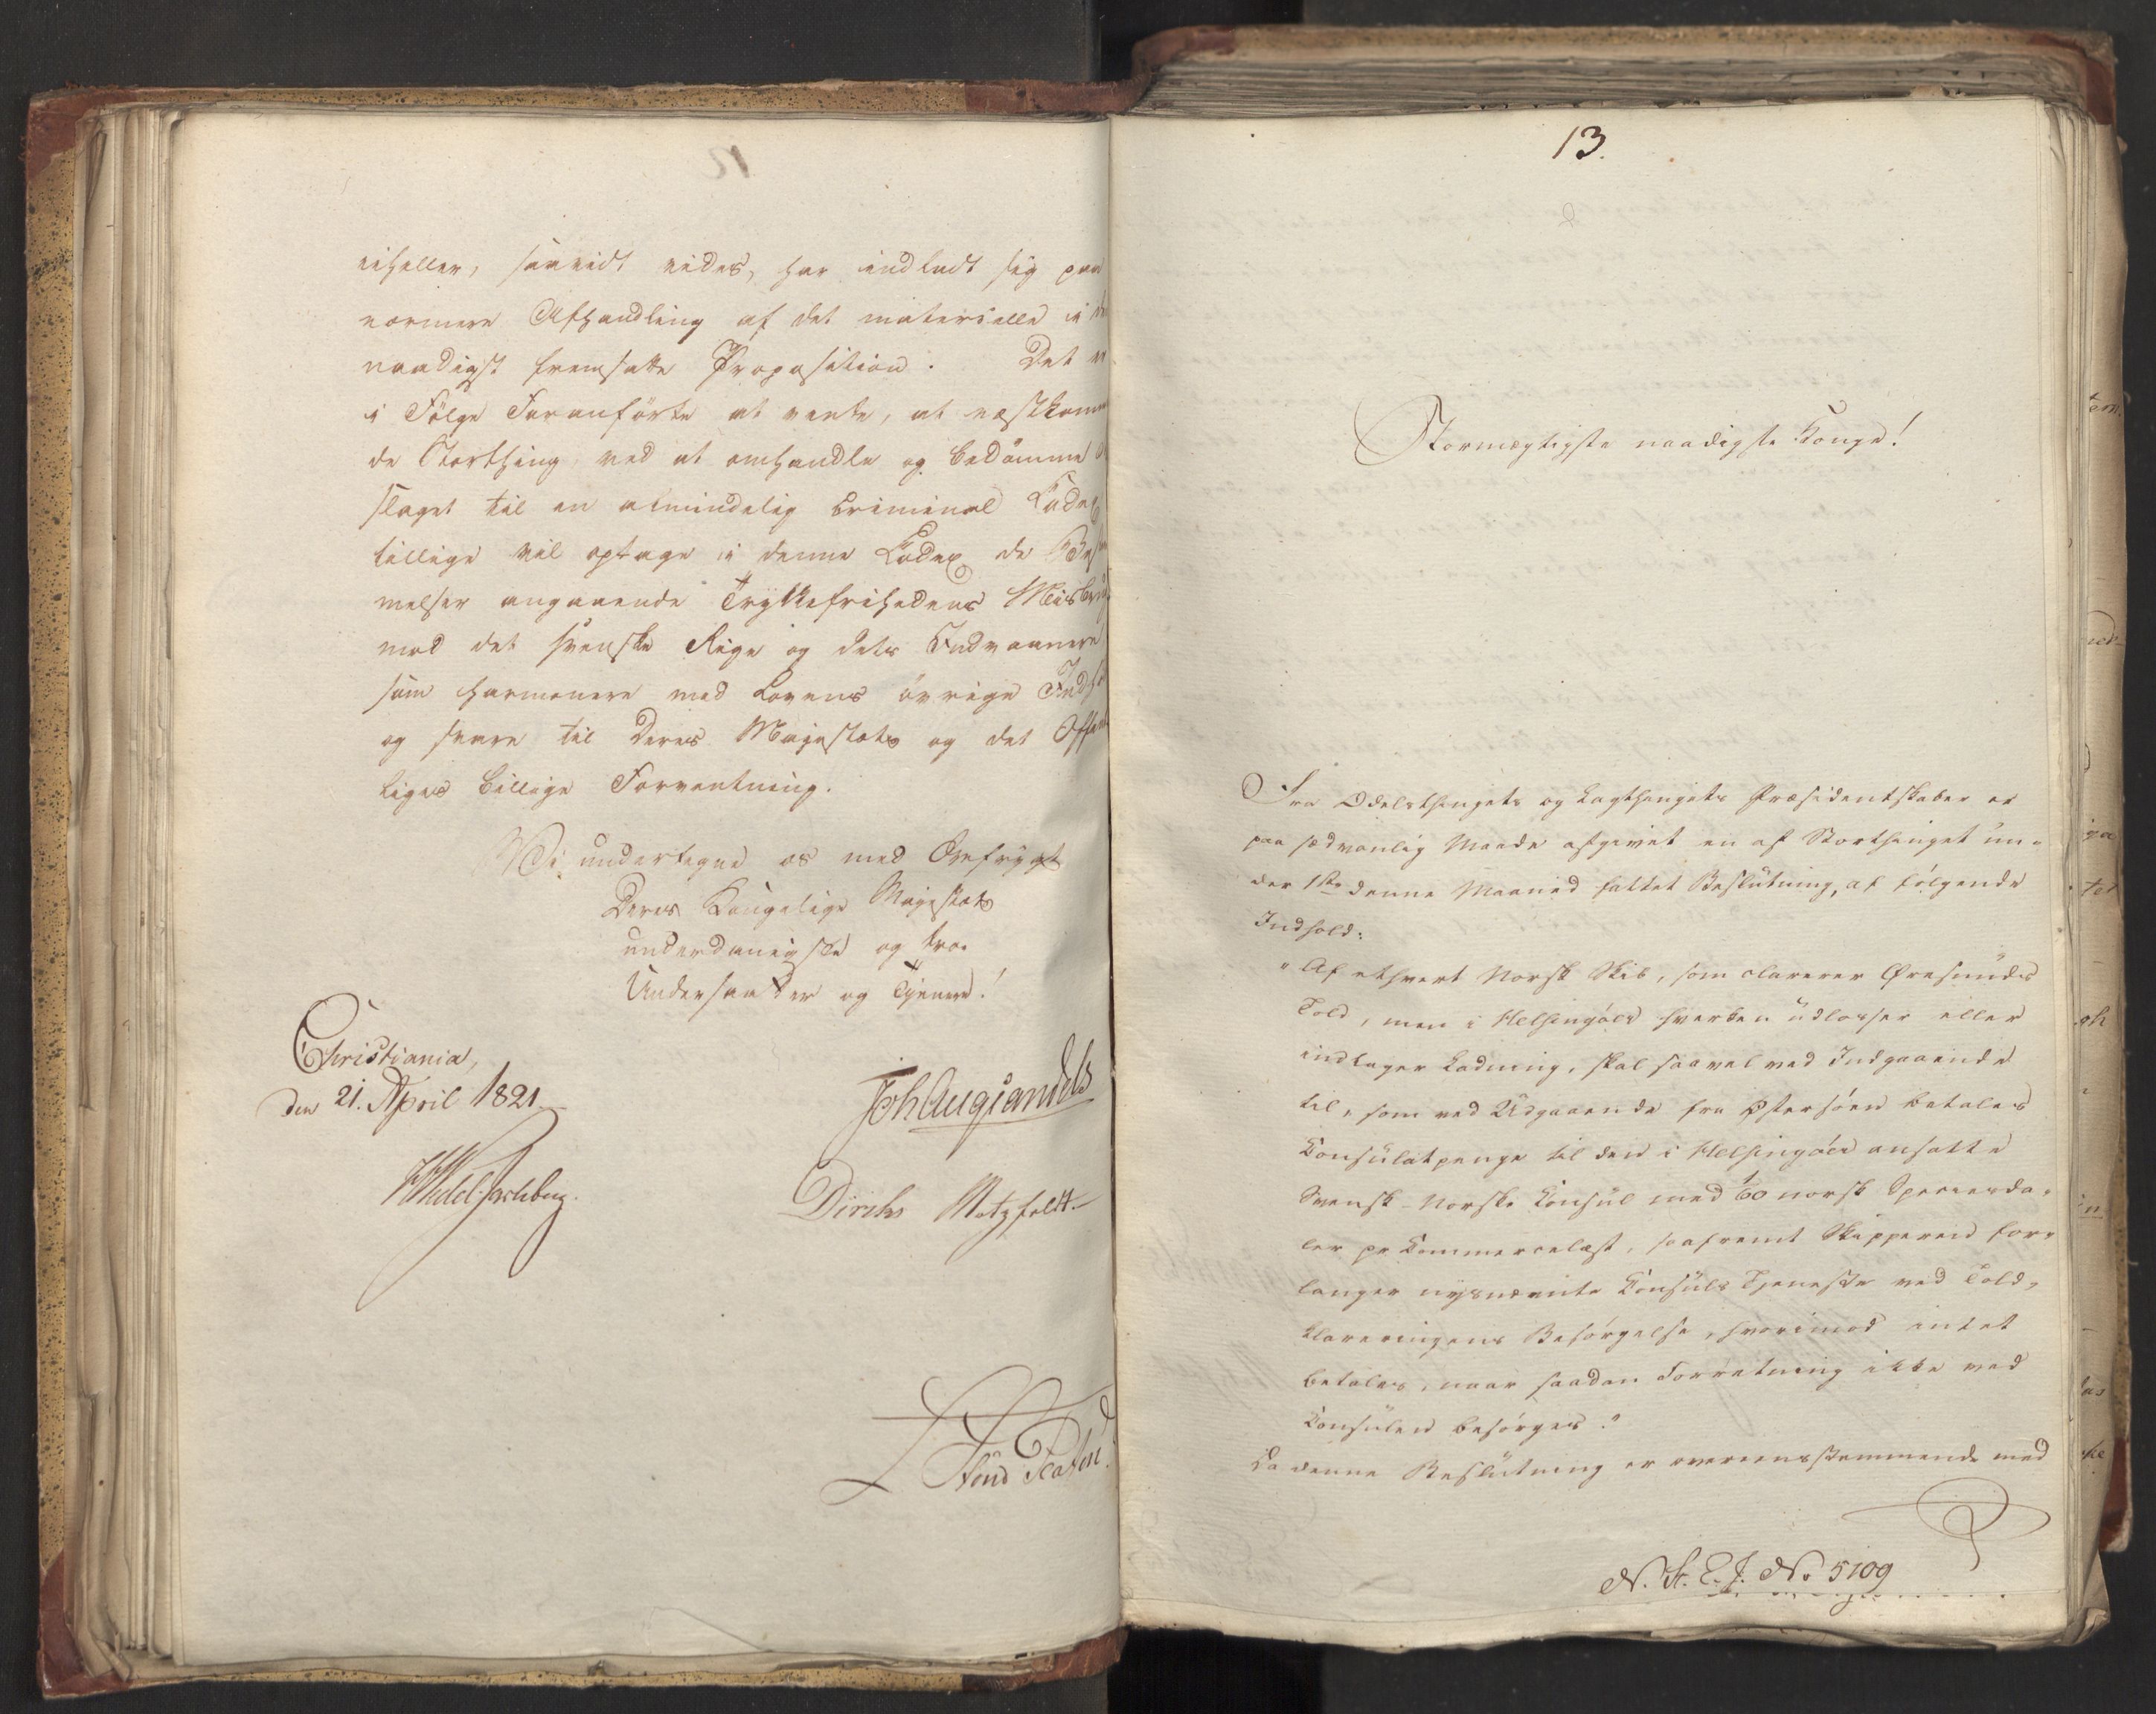 eiheller, saavidt vides, har indladt sig paa
nærmere Afhandling af det materielle i
naadigst fremsatte Proposition. Det
i Følge Foranførte at vente, at næstkom
de Storthing, ved at omhandle og bedømme
slaget til en almindelig Criminal Codex
tillige vil optage i denne Codex de
melser angaaende Trykkefrihedens Misbrug
mod det svenske Rige og dets Indvaanere
som harmonere med Lovens øvrige
og svare til Deres Majestæts og det Offent
liges billige Forventning.
Vi undertegne os med Ærefrygt
Deres Kongelige Majestæts
underdanigste og troe
Undersaatter og Tjenere!
Christiania,
den 21. April 1821
Joh Aug Sandels
Dirch Motzfeldt
13.
Stormægtigste naadigste Konge!
Fra Odelsthingets og Lagthingets Præsidentskaber er
paa sædvanlig Maade afgivet en af Storthinget un-
der 1ste denne Maaned fattet Beslutning, af følgende
Indhold:
"Af ethvert Norsk Skib, som clarerer Øresunds
Told, men i Helsingöer hverken udlosser eller
indtager Ladning, skal saavel ved Indgaaende
til, som ved Udgaaende fra Østersöen betales
Consulatpenge til den i Helsingöer ansatte
Svensk-Norske Consul med 1/60 norsk Speciesda-
ler pr Commercelæst, saafremt Skipperen for-
langer nysnævnte Consuls Tjeneste ved Told-
klareringens Besörgelse, hvorimod intet
betales, naar saadan Forretning ikke ved
Consulen besörges."
Da denne Beslutning er overeensstemmende med
N. St. E. J. No 5109